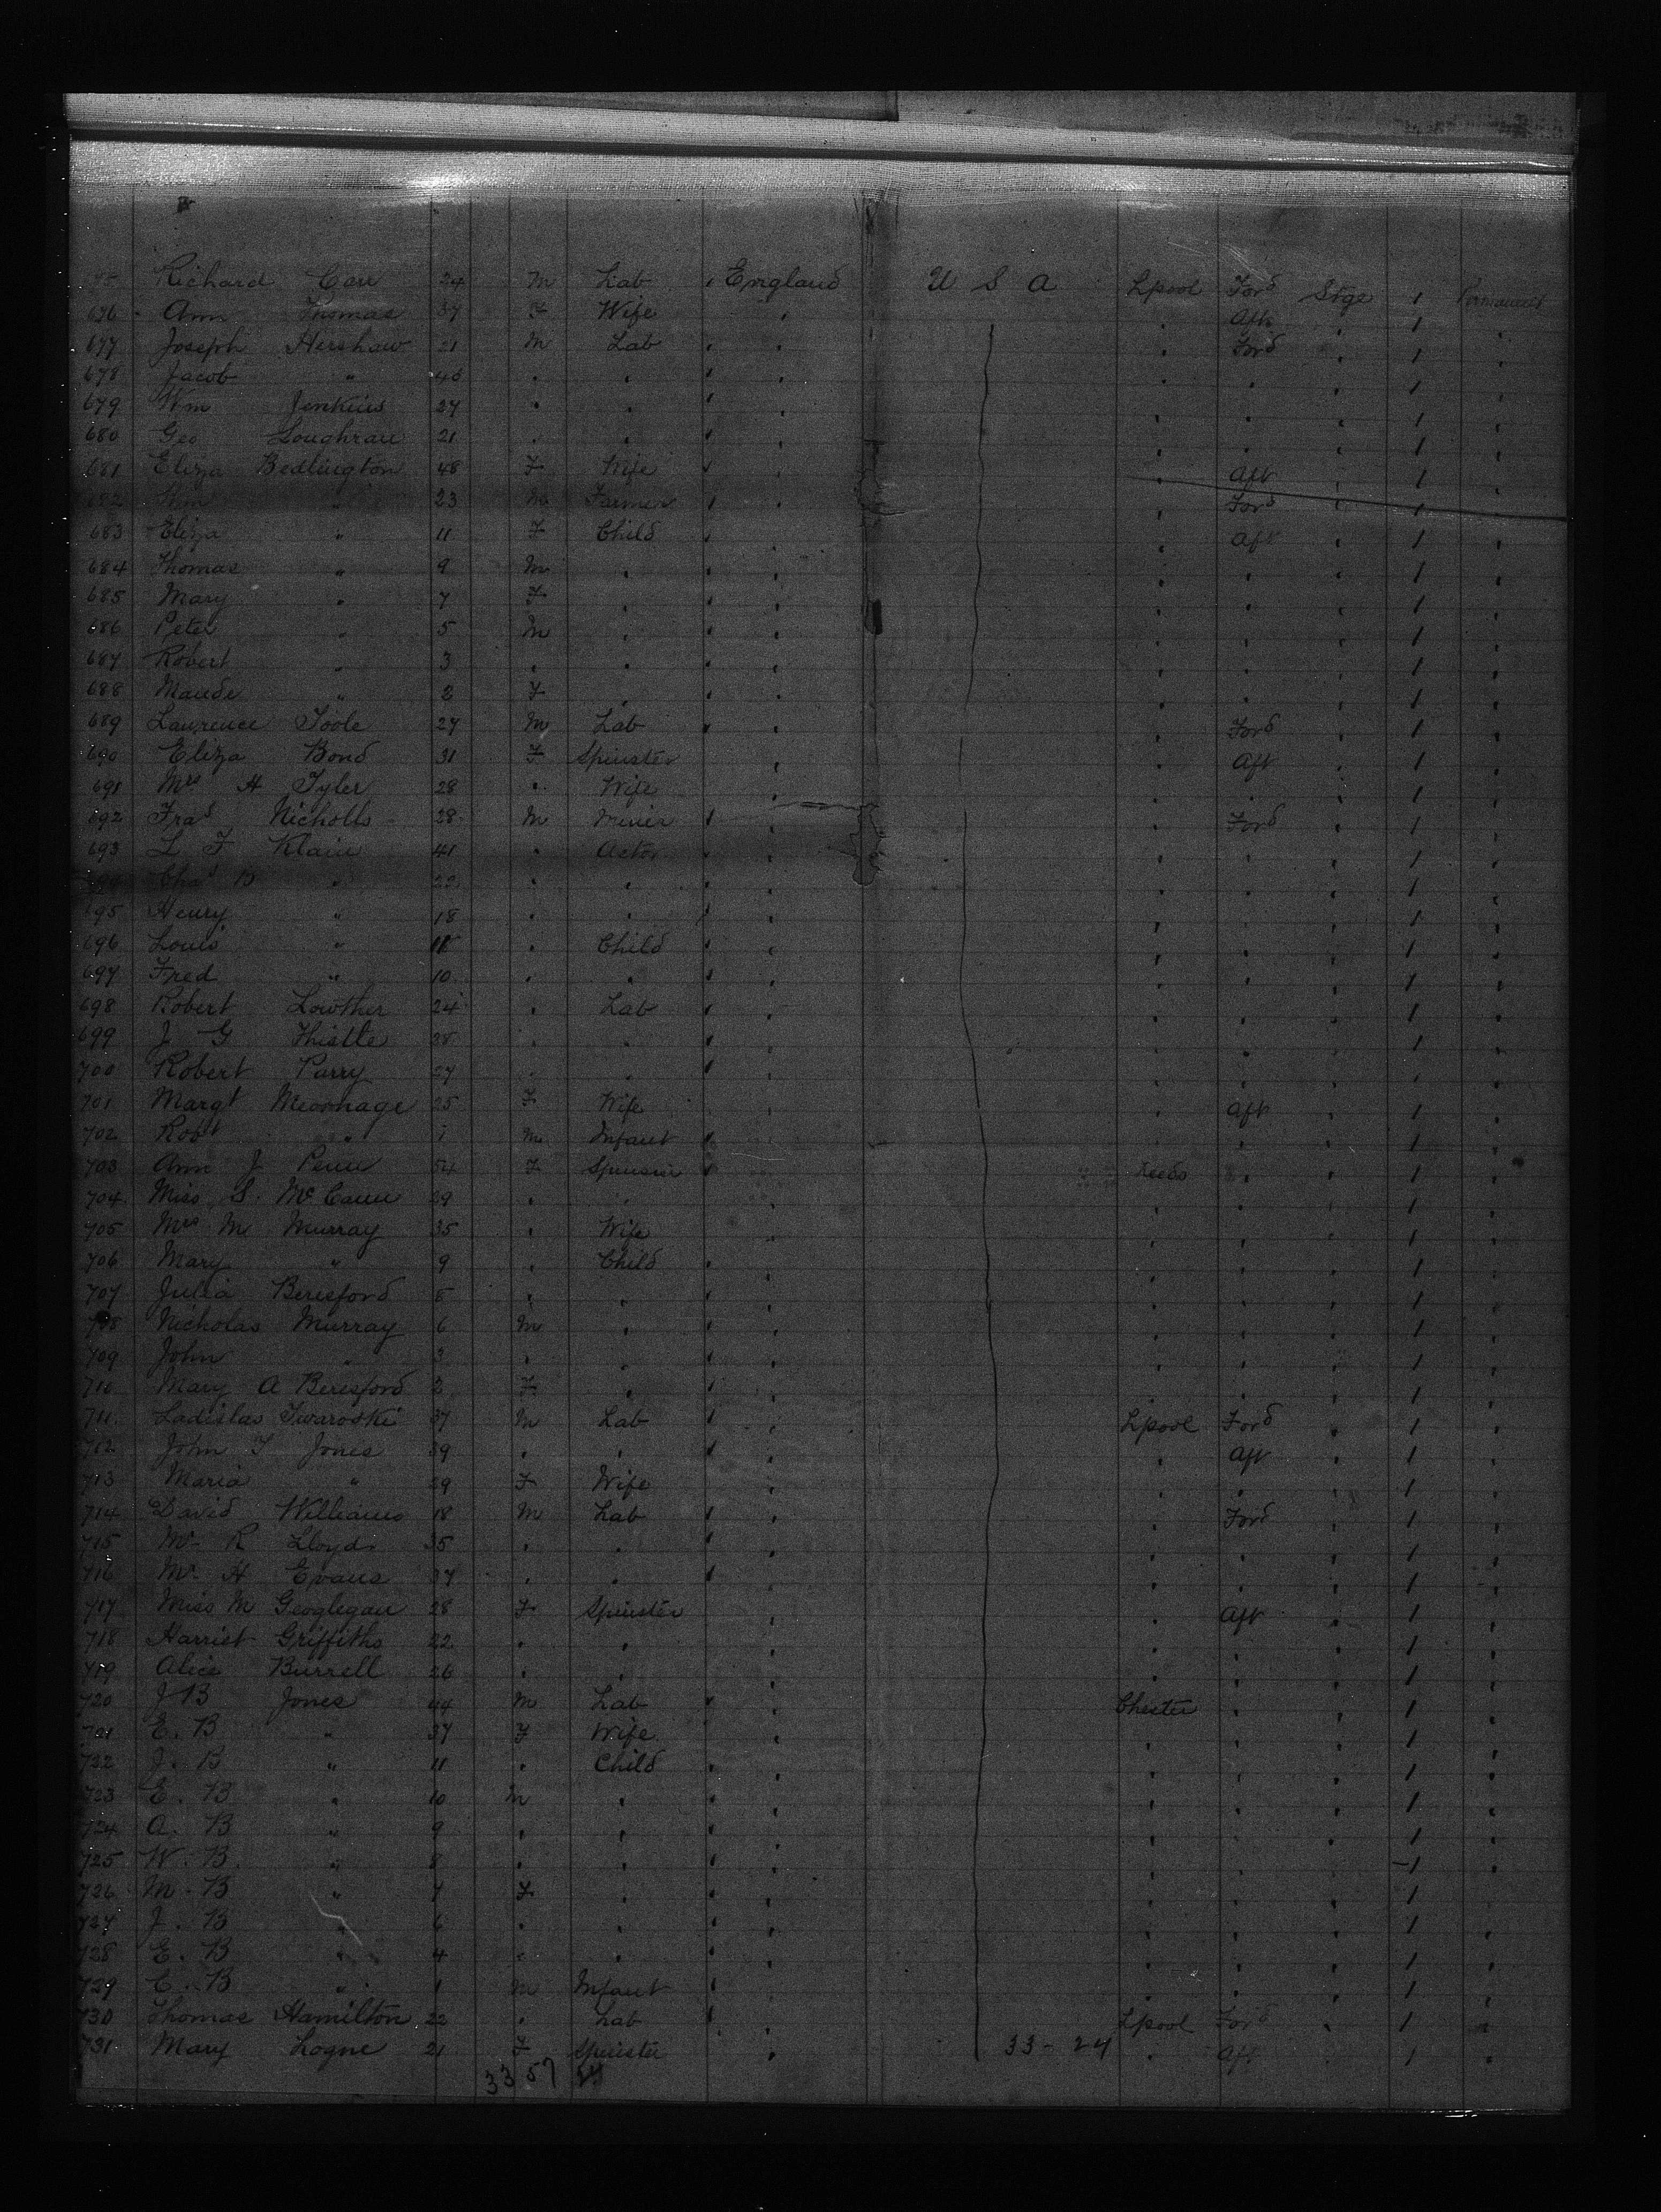 75 Richard Carr 24 M Lab England U S A Lpool Ford Stge 1 Permanent
676 Ann Thomas 37 F Wife " " Aft " 1 "
677 Joseph Hershaw 21 M Lab " " Ford " 1 "
678 Jacob " 40 " " " " " " 1 "
679 Wm Jenkins 27 " " " " " " 1 "
680 Geo Loughran 21 " " " " " " 1 "
681 Eliza Bedlington 48 F Wife " " Aft " 1 "
682 Wm " 23 M Farmer " " Ford " 1 "
683 Eliza " 11 F Child " " Aft " 1 "
684 Thomas " 9 M " " " " " 1 "
685 Mary " 7 F " " " " " 1 "
686 Peter " 5 M " " " " " 1 "
687 Robert " 3 " " " " " " 1 "
688 Maude " 2 F " " " " " 1 "
689 Lawrence Toole 27 M Lab " " Ford " 1 "
690 Eliza Bond 31 F Spinster " " Aft " 1 "
691 Mrs H Tyler 28 " Wife " " " " 1 "
692 Fras Nicholls 28 M Miner " " Ford " 1 "
693 L F Klain 41 " Actor " " " " 1 "
Chas B " " " " " " " 1 "
695 Henry " 18 " " " " " " 1 "
696 Louis " 11 " Child " " " " 1 "
697 Fred " 10 " " " " " " 1 "
698 Robert Lowther 24 " Lab " " " " 1 "
699 J G Thistle 28 " " " " " " 1 "
700 Robert Parry 27 " " " " " " 1 "
701 Margt 25 F Wife " " Aft " 1 "
702 Robt " 1 M Infant " " " " 1 "
703 Ann J Penn 54 F Spinster " Leeds " " 1 "
704 Miss S. McCann 29 " " " " " " 1 "
705 Mrs M Murray 35 " Wife " " " " 1 "
706 Mary " 9 " Child " " " " 1 "
707 Julia Beresford 5 " " " " " " 1 "
708 Nicholas Murray 6 M " " " " " 1 "
709 John " 3 " " " " " " 1 "
710 Mary A Beresford 2 F " " " " " 1 "
711 Ladislas Twaroski 37 M Lab " Lpool Ford " 1 "
712 John T Jones 39 " " " " Aft " 1 "
713 Maria " 29 F Wife " " " " 1 "
714 David Williams 18 M Lab " " Ford " 1 "
715 Mr R Lloyd 35 " " " " " " 1 "
716 Mr H Evans 37 " " " " " " 1 "
717 Miss M Geoglegan 28 F Spinster " " Aft " 1 "
718 Harriet Griffiths 22 " " " " " " 1 "
719 Alice Burrell 26 " " " " " " 1 "
720 J B Jones 44 M Lab " Chester " " 1 "
721 E. B " 37 F Wife " " " " 1 "
722 J. B " 11 " Child " " " " 1 "
723 E. B " 10 M " " " " " 1 "
724 A. B " 9 " " " " " " 1 "
725 W. B " 8 " " " " " " 1 "
726 M. B " 7 F " " " " " 1 "
727 J. B " 6 " " " " " " 1 "
728 E. B " 4 " " " " " " 1 "
729 C. B " 1 M Infant " " " " 1 "
730 Thomas Hamilton 22 " Lab " Lpool Ford " 1 "
731 Mary Logne 21 F Spinster " 33-24 " Aft " 1 "
33 57